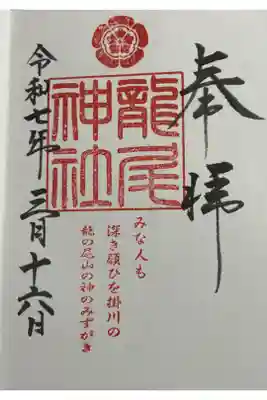 奉拝
龍尾
神社
みな人も
深き願ひを掛川の
龍の尾山の神のみずがき
令和七年三月十六日